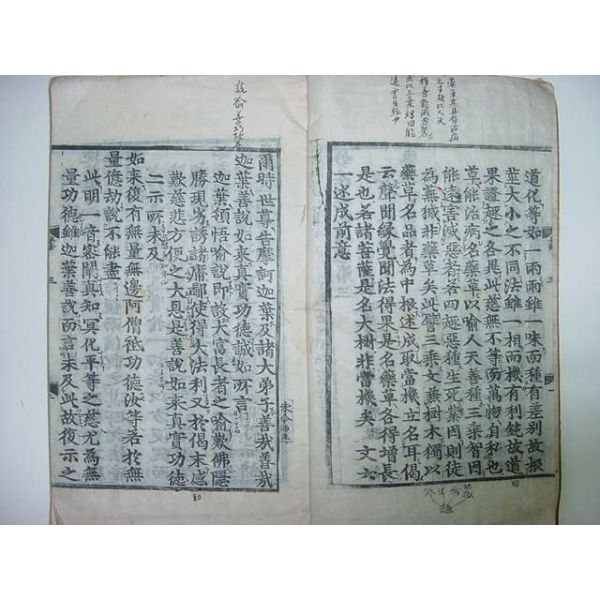 道化等如一雨雨雖一味而種有差別故根
莖大小之不同法雖一相而機有利鈍故道
果證趣之各異此慈無不等而萬物自私也
草能治病名藥草以喻人天善種三乘智因
能遠害滅惡者各四趣惡種生死業因則徒
為蕪穢非藥草矣此譬三乘文兼樹木獨以
藥草名品者為中根述成取當機立名耳偈
云聲聞緣覺聞法得果是名藥草各得增長
是也若諸菩薩是名大樹非當機矣 文六
一述成前意
爾時世尊告摩訶迦葉及諸大弟子善哉善哉
迦葉善說如來真實功德誠如所言
迦葉領悟喻說即設大富長者之喻歎佛隱
勝現劣誘諸庸鄙使得大法利又於偈末感
歎慈悲方便之大恩是善說如來真實功德
二示所未及
如來復有無量無邊阿僧祇功德汝等若於無
量億劫說不能盡
此明一音密闡真知冥化平等之慈尤為無
量功德雖迦葉善說而言未及此故復示之